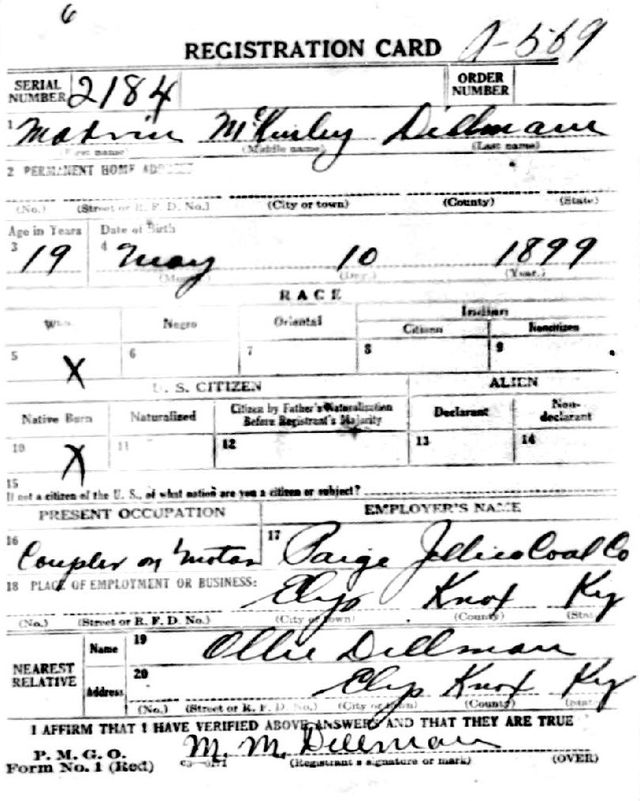 6
REGISTRATION CARD A-569
SERIAL NUMBER 2184 ORDER NUMBER
1 Marvin McKinley Dillman
(First name) (Middle name) (Last name)
2 PERMANENT HOME ADDRESS
(No.) (Street or R. F. D. No.) (City or town) (County) (State)
Age in Years Date of Birth
3 19 4 May 10 1899
(Month.) (Day.) (Year.)
RACE
White Negro Oriental Indian
Citizen Noncitizen
5 X 6 7 8 9
U. S. CITIZEN ALIEN
Native Born Naturalized Citizen by Father's Naturalization Before Registrant's Majority Declarant Non-declarant
10 X 11 12 13 14
15
If not a citizen of the U. S., of what nation are you a citizen or subject?
PRESENT OCCUPATION EMPLOYER'S NAME
16 Coupler on Motor 17 Paige Jellico Coal Co
18 PLACE OF EMPLOYMENT OR BUSINESS:
Elys Knox Ky
(No.) (Street or R. F. D. No.) (City or town) (County) (State)
NEAREST RELATIVE
Name 19 Ollie Dillman
Address 20 Elys Knox Ky
(No.) (Street or R. F. D. No.) (City or town) (County) (State)
I AFFIRM THAT I HAVE VERIFIED ABOVE ANSWERS AND THAT THEY ARE TRUE
P. M. G. O.
Form No. 1 (Red) M. M. Dillman
(Registrant's signature or mark) (OVER)